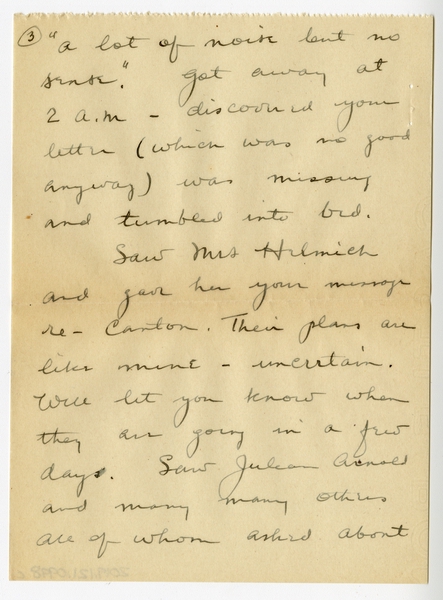 ③ "a lot of noise but no
sense." Got away at
2 a.m - discovered your
letter (which was no good
anyway) was missing
and tumbled into bed.
Saw Mrs Helmick
and gave her your message
re - Canton. Their plans are
like mine - uncertain.
Will let you know when
they are going in a few
days. Saw Julean Arnold
and many many others
all of whom asked about